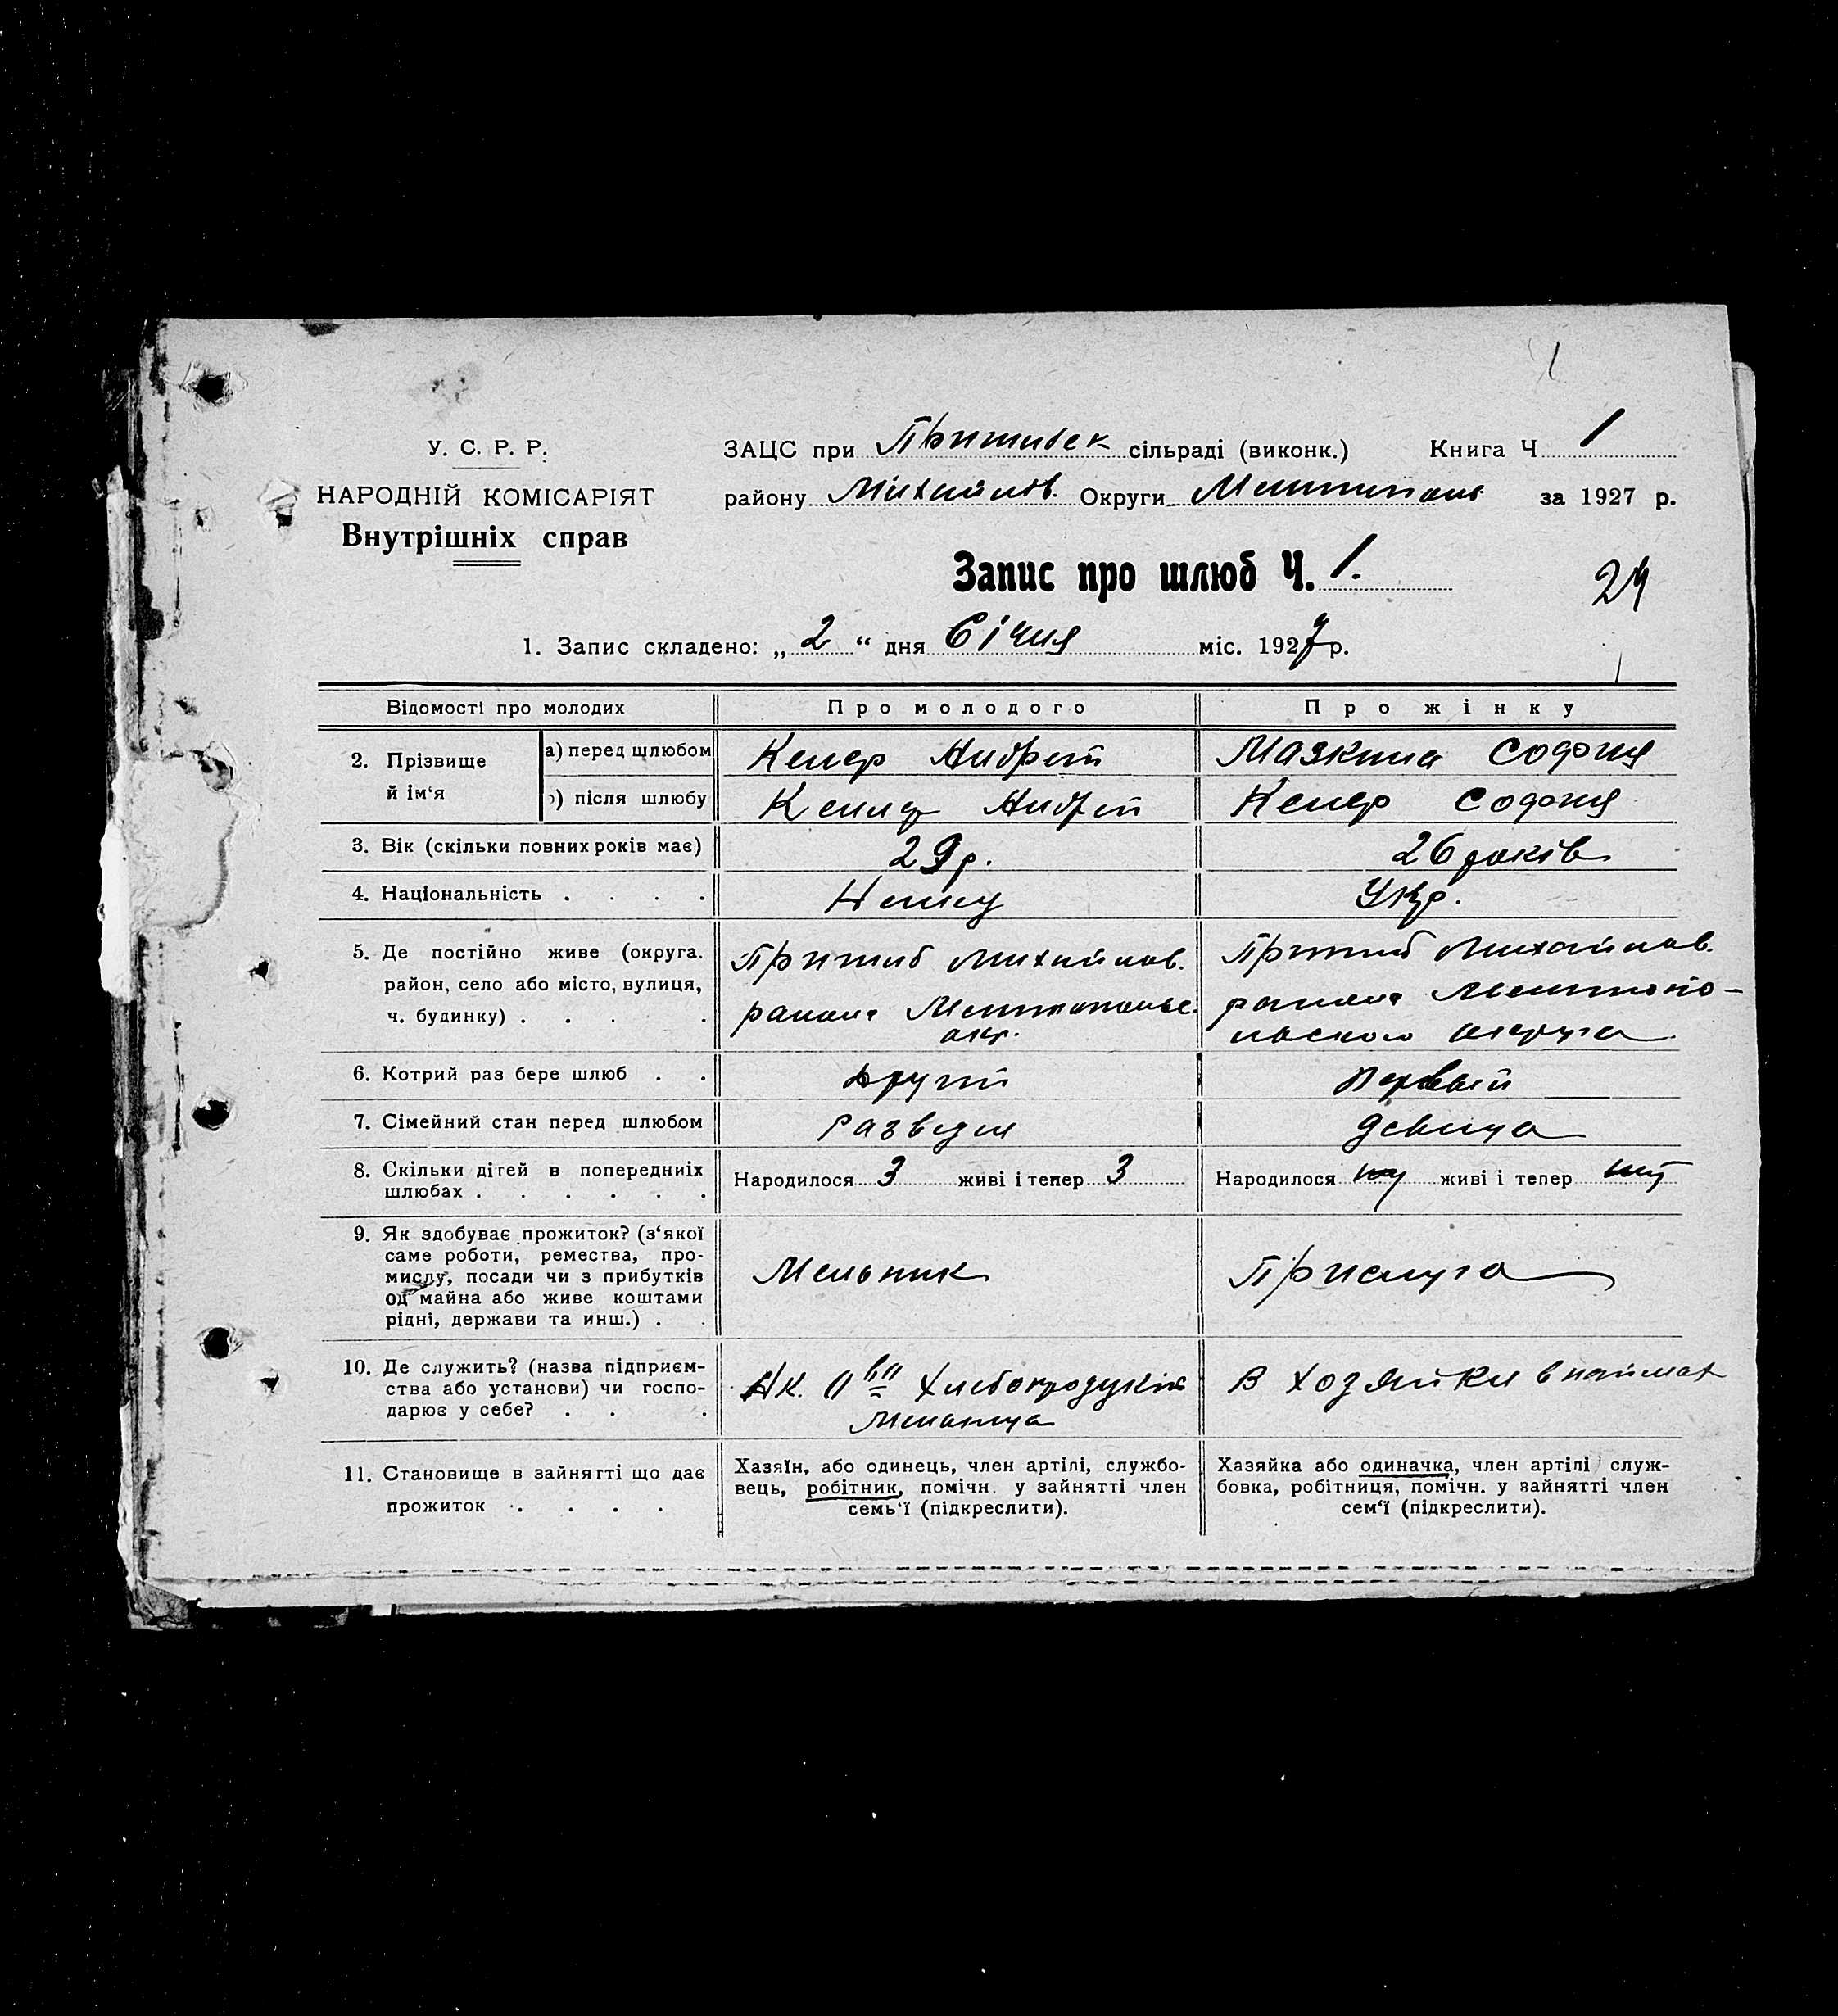 1
У. С. Р. Р.
НАРОДНІЙ КОМІСАРІЯТ
Внутрішніх справ
ЗАЦС при Пришибск сільраді (виконк.) Книга Ч 1
району Михайлів. Округи Мелитопольс за 1927 р.
Запис про шлюб Ч. 1.
24
1. Запис складено: „ 2 “ дня Січня міс. 1927 р.
Відомості про молодих Про молодого Про жінку
2. Прізвище й ім‘я
а) перед шлюбом Андрей София
) після шлюбу Андрей София
3. Вік (скільки повних років має) 29 р. 26 років
4. Національність . . . . Немец Укр.
5. Де постійно живе (округа. район, село або місто, вулиця, ч. будинку) . . . .
Пришиб Михайлов.
района Мелитопольс.
окр.
Пришиб Михайлов.
района Мелитопо-
льского округа
6. Котрий раз бере шлюб . . другий первый
7. Сімейний стан перед шлюбом разведен девица
8. Скільки дітей в попередниіх шлюбах . . . . . .
Народилося 3 живі і тепер 3
Народилося живі і тепер
9. Як здобуває прожиток? (з‘якої
саме роботи, ремества, про-
мислу, посади чи з прибутків
од майна або живе коштами
рідні, держави та инш.) . .
Мельник
Прислуга
10. Де служить? (назва підприєм-
ства або установи) чи госпо-
дарює у себе? . . .
Хлебопродуктів
Мельница
В хозяйки в наймах
11. Становище в зайнятті що дає
прожиток . . . .
Хазяїн, або одинець, член артілі, службо-
вець, робітник, помічн. у зайнятті член
семь‘ї (підкреслити).
Хазяйка або одиначка, член артілі служ-
бовка, робітниця, помічн. у зайнятті член
сем‘ї (підкреслити).